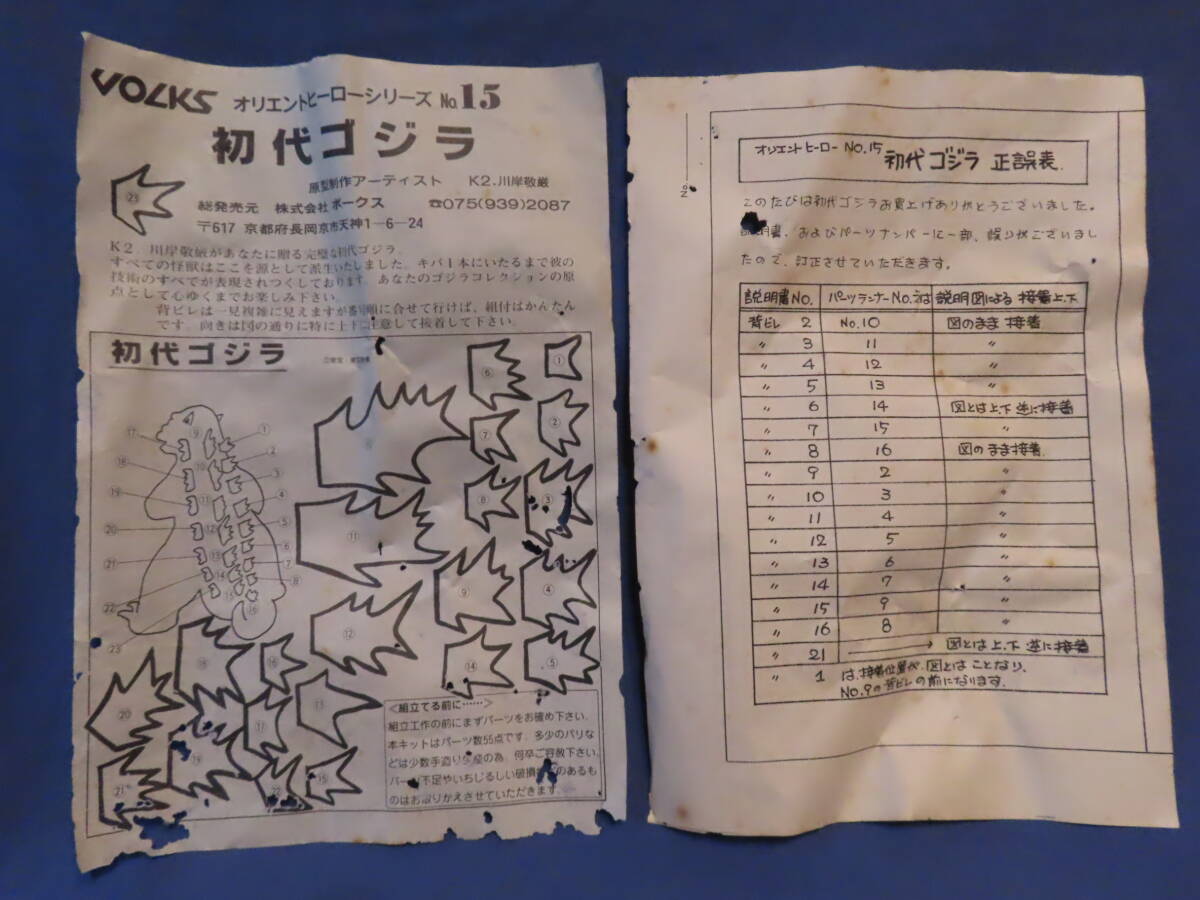 VOLKS オリエントヒーローシリーズ No.15
初代ゴジラ
原型制作アーティスト K2.川岸敬厳
総発売元 株式会社ボークス ☎075(939)2087
〒617 京都府長岡京市天神1-6-24
23
K2.川岸敬厳があなたに贈る完璧な初代ゴジラ。
すべての怪獣はここを源として派生いたしました。キバ1本にいたるまで彼の
技術のすべてが表現されつくしております。あなたのゴジラコレクションの原
点として心ゆくまでお楽しみ下さい。
背ビレは一見複雑に見えますが番号順に合せて行けば、組付はかんたん
です。向きは図の通りに特に上下に注意して接着して下さい。
初代ゴジラ
1
6
2
7
3
8
11
9
4
12
14
5
18
16
20
17
13
19
15
21
22
17 9 1
18 10 2
19 11 3
20 12 4
21 13 5
22 14 6
23 15 7
16 8
<組立てる前に……>
組立工作の前にまずパーツをお確め下さい。
本キットはパーツ数55点です。多少のバリな
どは少数手造り生産の為、何卒ご容赦下さい。
パーツ不足やいちじるしい破損などのあるも
のはお取りかえさせていただきます。
No.
オリエントヒーロー NO.15 初代ゴジラ 正誤表.
このたびは初代ゴジラお買上げありがとうございました。
説明書、およびパーツナンバーに一部、誤りがございまし
たので、訂正させていただきます。
説明書NO. パーツランナーNO.では 説明図による 接着上.下
背ビレ 2 No.10 図のまま接着
〃 3 11 〃
〃 4 12 〃
〃 5 13 〃
〃 6 14 図とは上.下 逆に接着
〃 7 15 〃
〃 8 16 図のまま接着.
〃 9 2 〃
〃 10 3 〃
〃 11 4 〃
〃 12 5 〃
〃 13 6 〃
〃 14 7 〃
〃 15 9 〃
〃 16 8 〃
〃 21 → 図とは上.下 逆に接着
〃 1 は、接着位置が、図とは ことなり、
NO.9の背ビレの前になります。